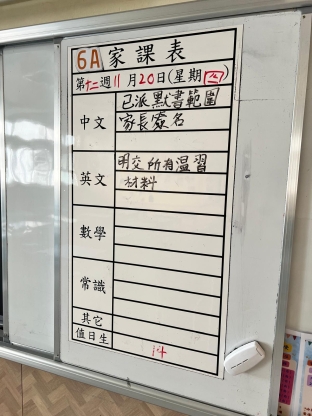 6A 家課表
第十二週 11月20日(星期四)
中文 已派默書範圍
家長簽名
英文 明交所有溫習
材料
數學
常識
其它
值日生 14